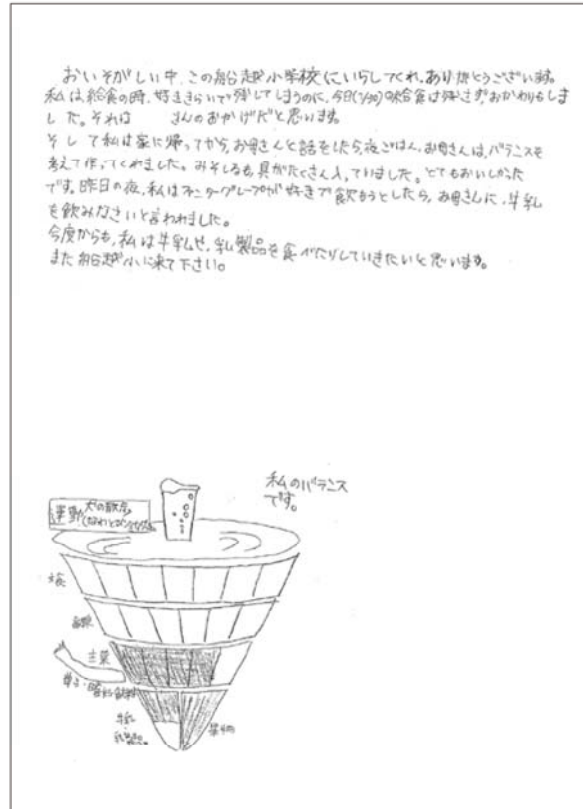 おいそがしい中、この船越小学校にいらしてくれ、ありがとうございます。
私は給食の時、好ききらいで残してしまうのに、今日(1/30)の給食は残さず、おかわりもしま
した。それは さんのおかげだと思います。
そして私は家に帰ってから、お母さんと話をしたら、夜ごはん、お母さんは、バランスを
考えて作ってくれました。みそしるも、具がたくさん入っていました。とてもおいしかった
です。昨日の夜、私はグレープが好きで飲もうとしたら、お母さんに、牛乳
を飲みなさいと言われました。
今度からも、私は牛乳や、乳製品を食べたりしていきたいと思います。
また船越小に来て下さい。
私のバランス
です。
運動
犬の散歩
主食
副菜
主菜
菓子・嗜好飲料
牛乳・
乳製品
果物